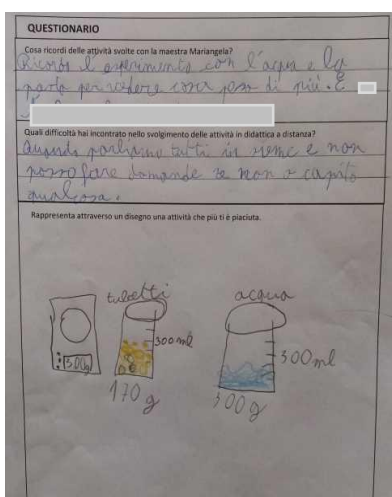 QUESTIONARIO
Cosa ricordi delle attività svolte con la maestra Mariangela?
Ricordo l'esperimento con l'acqua e la
pasta per vedere cosa pesa di più. E
Quali difficoltà hai incontrato nello svolgimento delle attività in didattica a distanza?
Quando parliamo tutti in sieme e non
posso fare domande se non o capito
qualcosa.
Rappresenta attraverso un disegno una attività che più ti è piaciuta.
tubetti acqua
300 ml
300 ml
300g
170 g 300 g